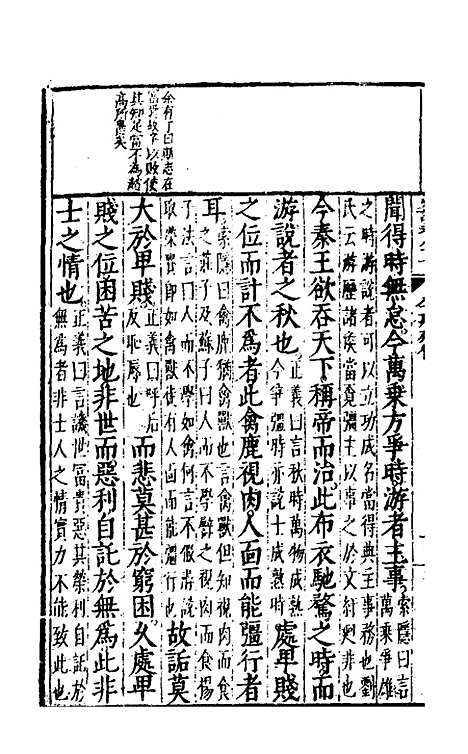 余有丁曰斯志在
富貴故卒以敗使
其知足當不為趙
高所賣矣
聞得時無怠今萬乘方爭時游者主事索隱曰言萬乘爭雄
之時游說者可以立功成名當得典主事務也劉
氏云游歷諸侯當覓彊主以事之於文紆迴非也
今秦王欲吞天下稱帝而治此布衣馳騖之時而
游說者之秋也正義曰言秋時萬物成熟今爭彊時亦說士成熟處卑賤
之位而計不為者此禽鹿視肉人面而能彊行者
耳索隱曰禽鹿猶禽獸也言禽獸但知視肉而食
之莊子及蘇子曰人而不學譬之視肉而食揚
子法言曰人而不學如禽何異言不假游說
取榮貴即如禽獸徒有人面而能彊行也故詬莫
大於卑賤正義曰呼后反恥辱也而悲莫甚於窮困久處卑
賤之位困苦之地非世而惡利自託於無為此非
士之情也正義曰言譏世富貴惡其榮利自託於
無為者非士人之情實力不能致此也